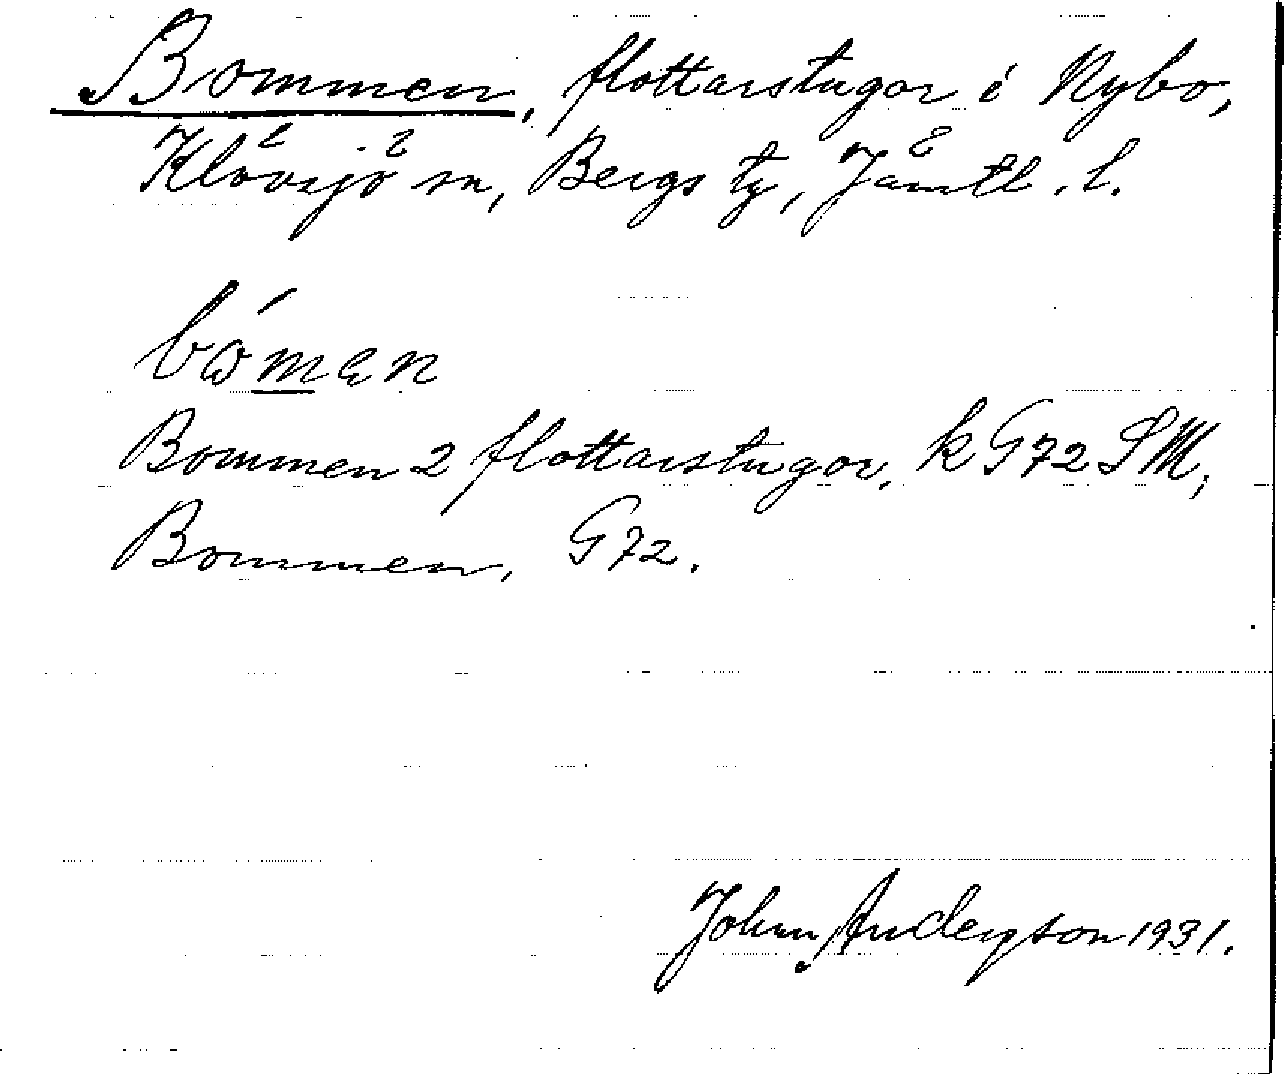 Bommen, flottarstugor i Nybo,
Klövsjö sn, Bergs tg, Jämtl. l.
bómɘn
Bommen 2 flottarstugor, k G72 SM,
Bommen, G72.
John Anderson 1931.